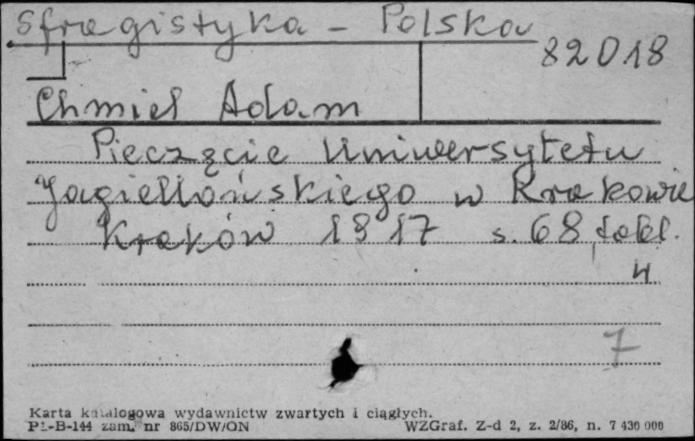 Sfragistyka - Polska
82018
Chmiel Adam
Pieczęcie Uniwersytetu
Jagiellońskiego w Krakowie
Kraków 1917 s. 68, tabl.
4
7
Karta katalogowa wydawnictw zwartych i ciągłych.
Pł-B-144 zam. nr 865/DW/ON WZGraf. Z-d 2, z. 2/86, n. 7 430 000